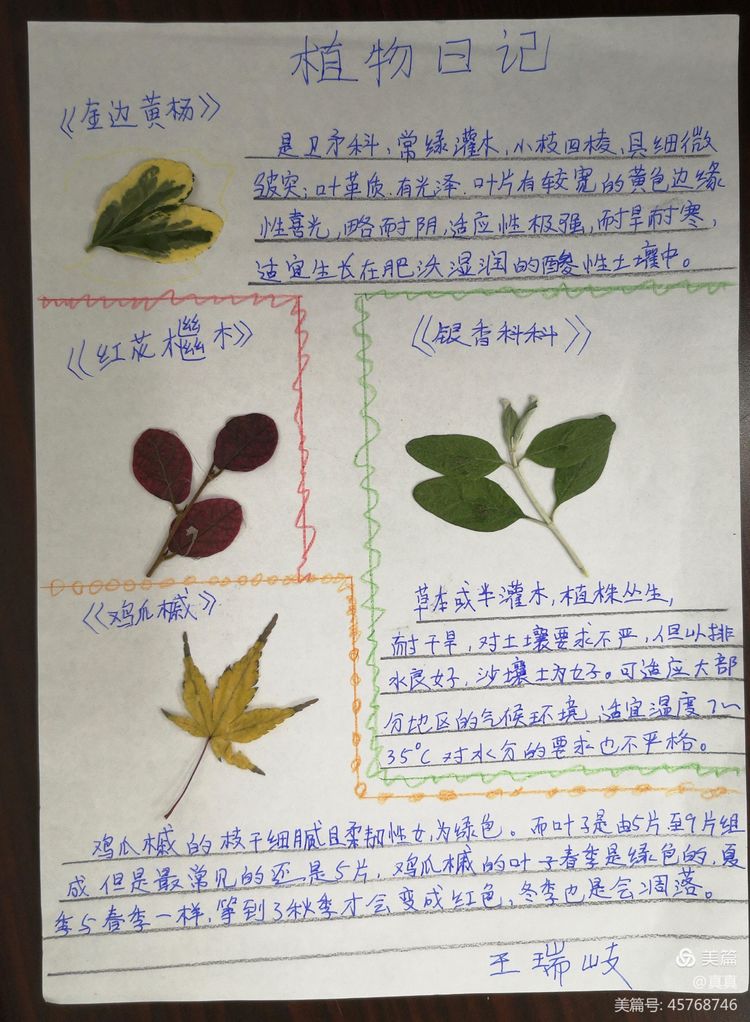 植物日记
《金边黄杨》
是卫矛科,常绿灌木,小枝四棱,具细微
皱突;叶革质.有光泽.叶片有较宽的黄色边缘
性喜光,略耐阴,适应性极强,耐旱耐寒,
适宜生长在肥沃湿润的酸性土壤中。
《红花檵木》
《银香科科》
草本或半灌木,植株丛生,
耐干旱,对土壤要求不严,但以排
水良好,沙壤土为好。可适应大部
分地区的气候环境,适宜温度7~
35℃对水分的要求也不严格。
《鸡爪槭》
鸡爪槭的枝干细腻且柔韧性好,为绿色。而叶子是由5片至9片组
成但是最常见的还是5片,鸡爪槭的叶子春季是绿色的,夏
季与春季一样,等到了秋季才会变成红色,冬季也是会凋落。
王瑞岐
美篇
@真真
美篇号: 45768746